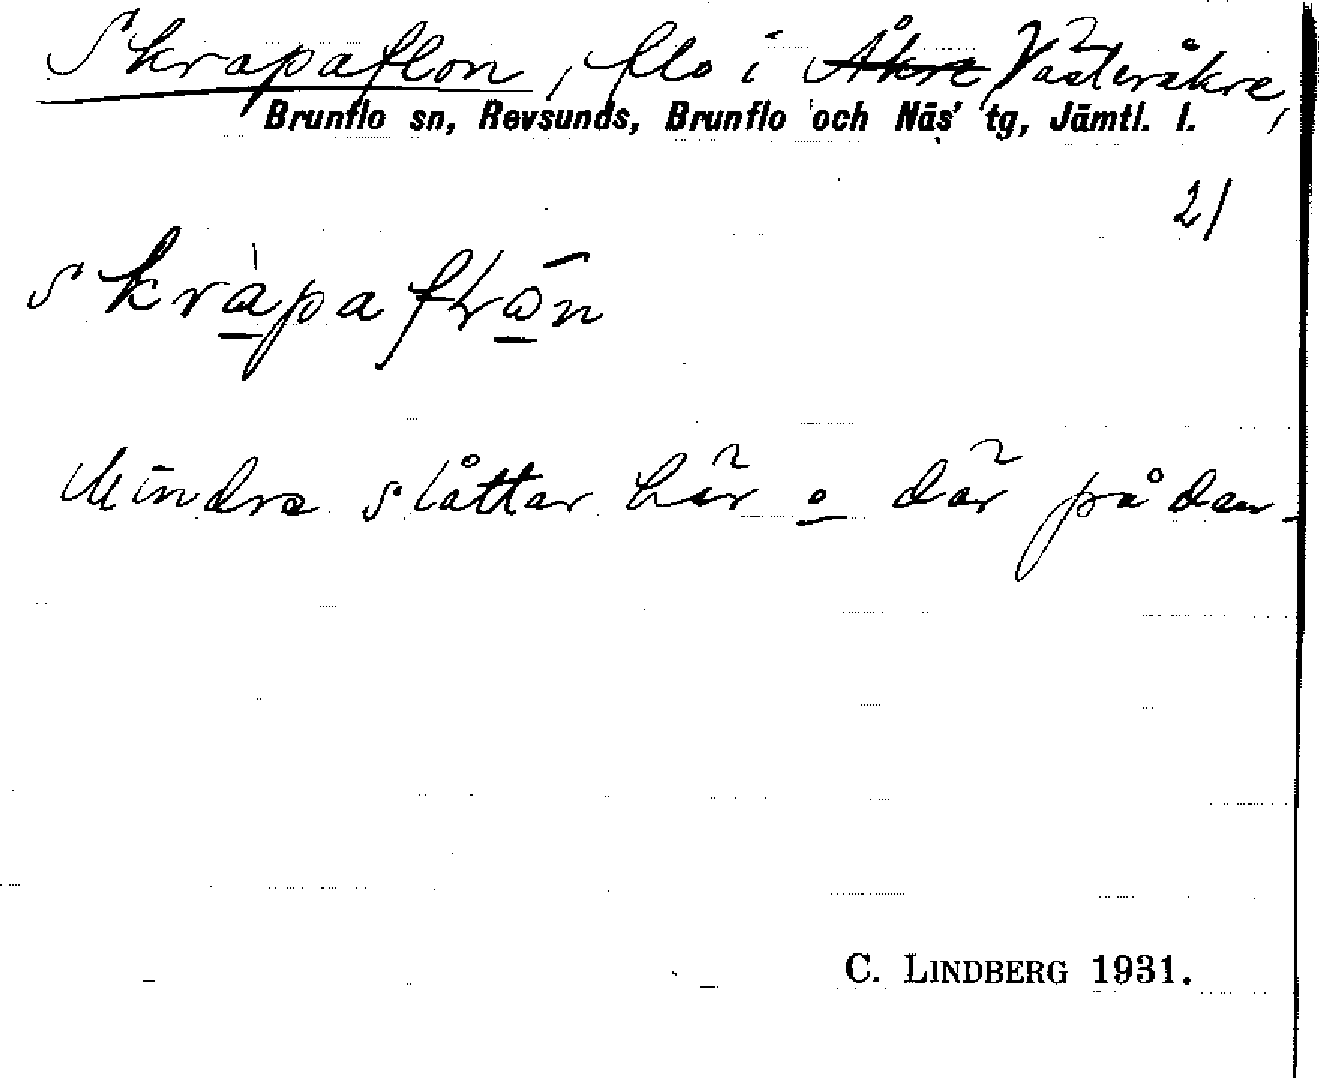 Skrapaflon, flo i Åkre Västeråkre,
Brunflo sn, Revsunds, Brunflo och Näs' tg, Jämtl. l.
21
skràpa
Mindre slåtter här o där på den
C. LINDBERG 1931.